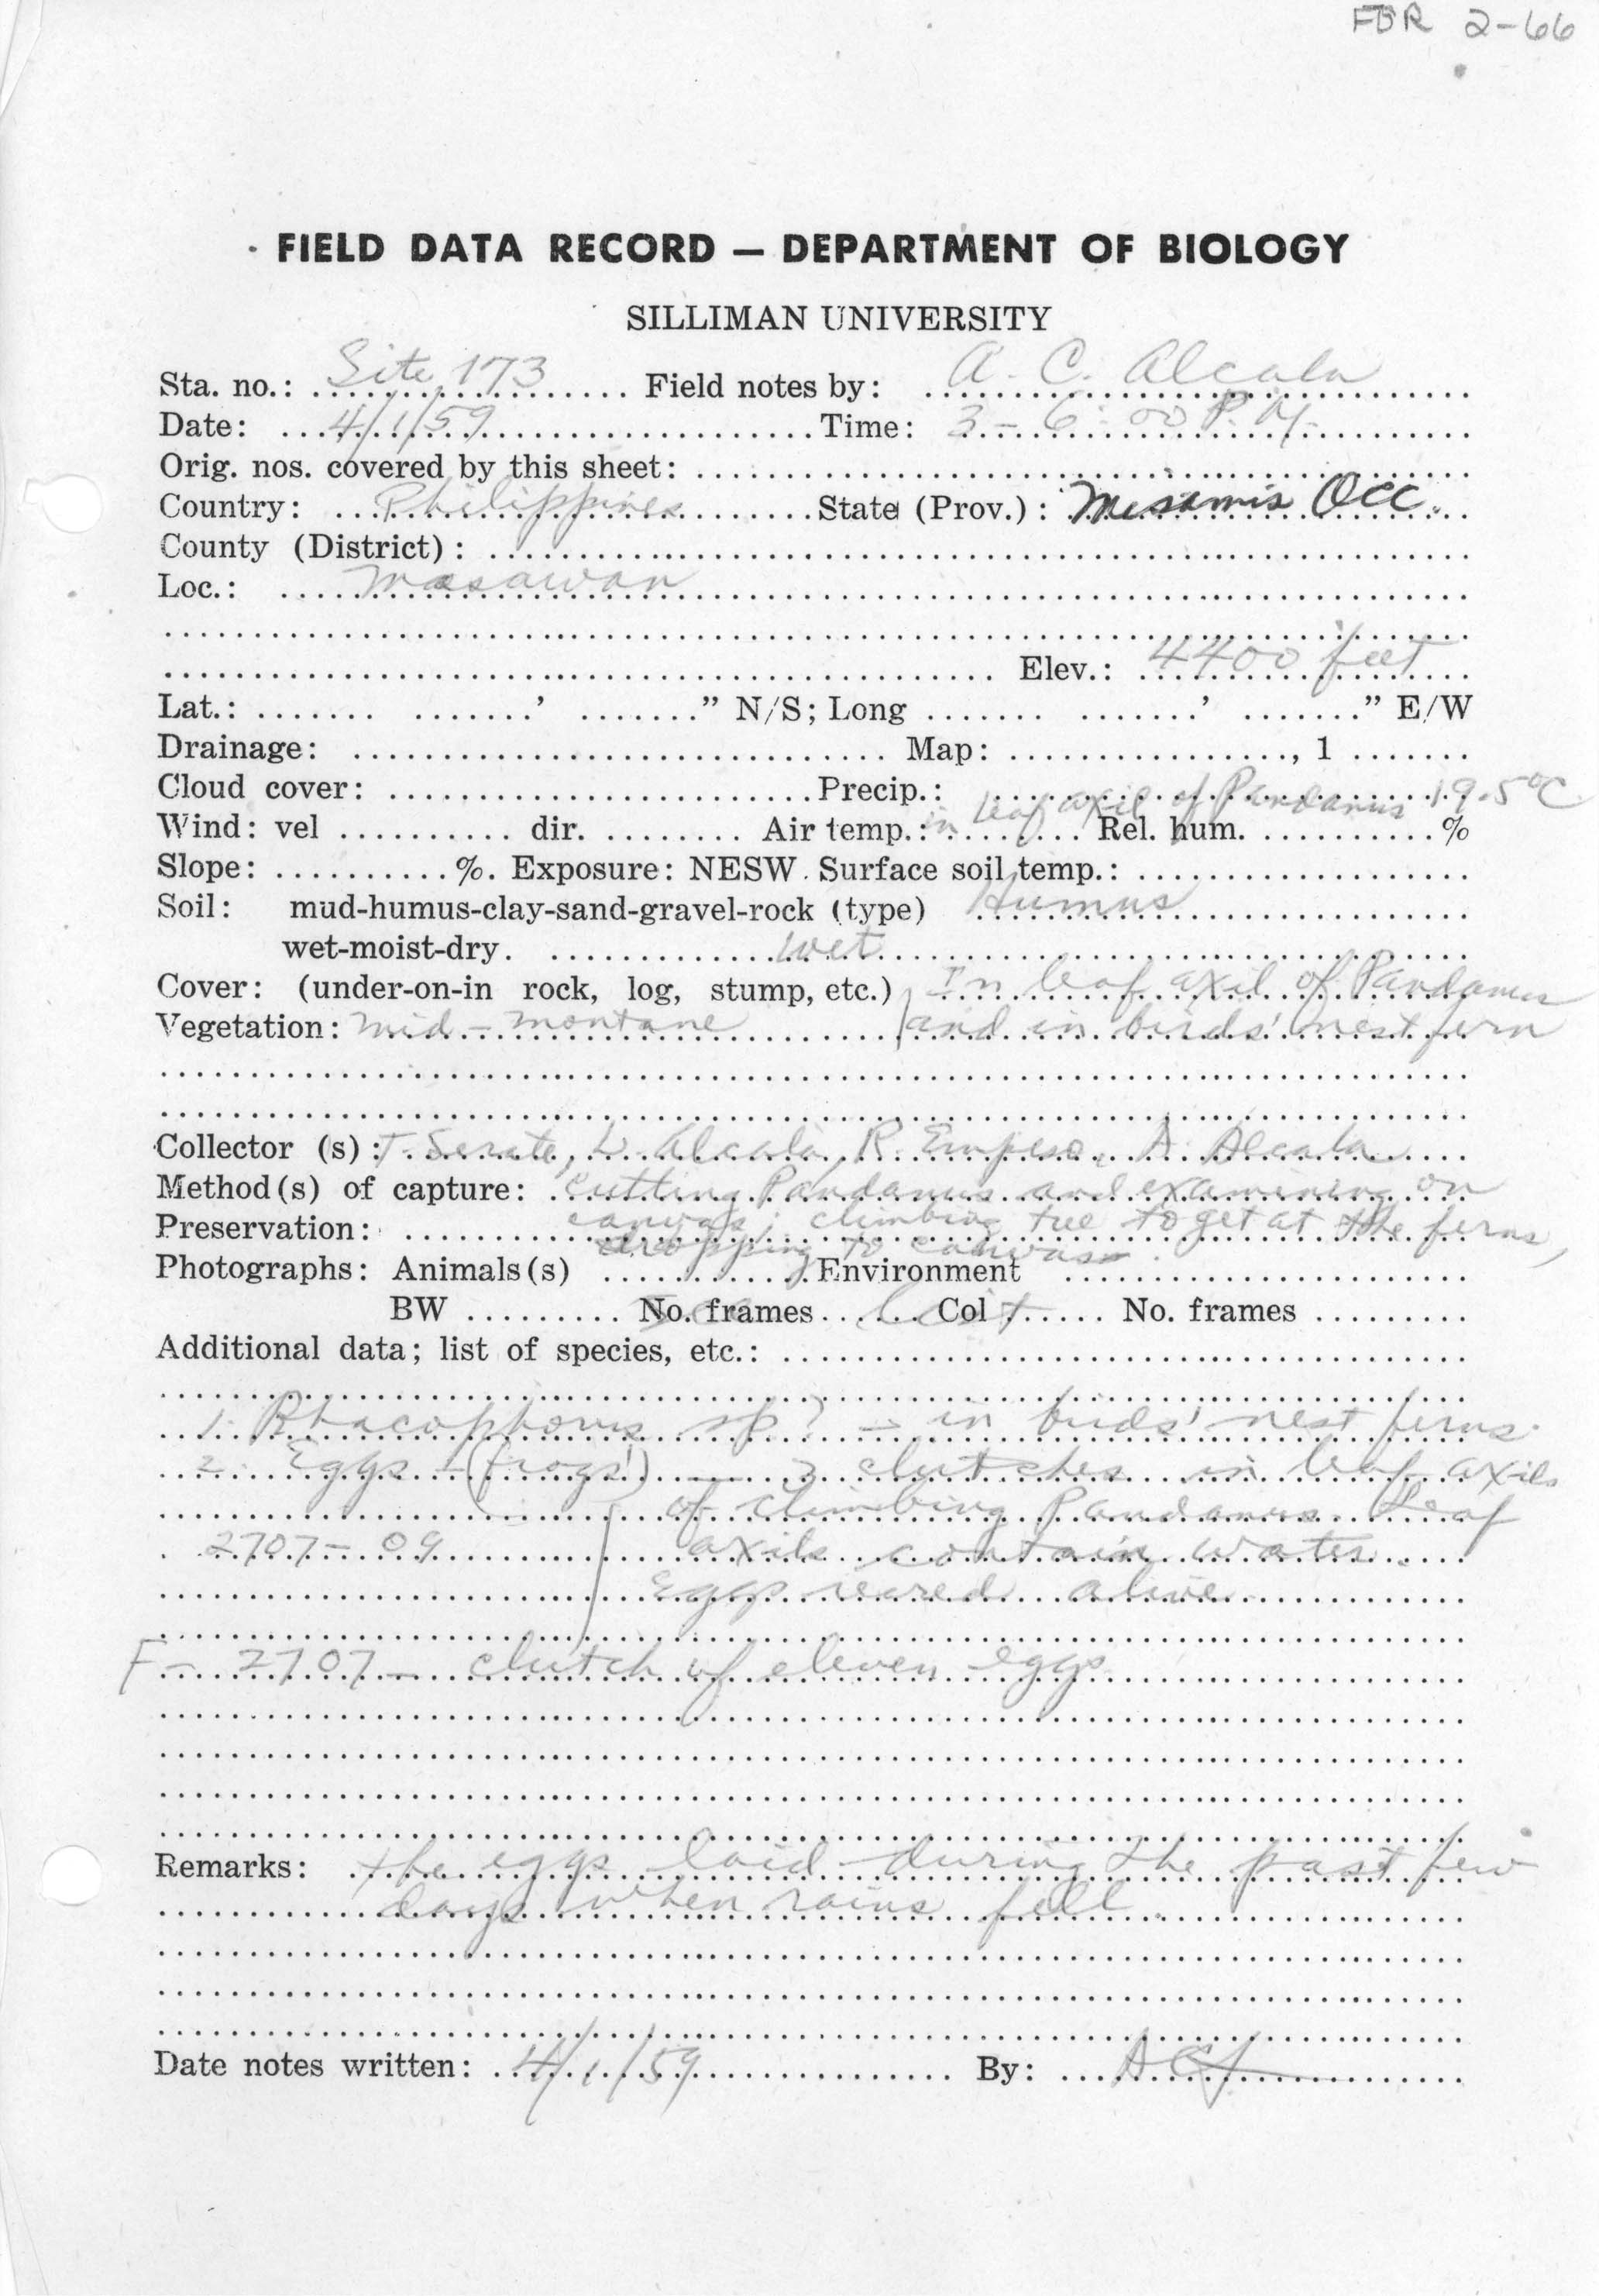 FDR 2-66
FIELD DATA RECORD — DEPARTMENT OF BIOLOGY
SILLIMAN UNIVERSITY
Sta. no.: Site 173 Field notes by: A. C. Alcala
Date: 4/1/59 Time: 3 - 6:00 P.M.
Orig. nos. covered by this sheet:
Country: Philippines State (Prov.): Misamis Occ.
County (District):
Loc.: Masawan
Elev.: 4400 feet
Lat.: ' " N/S; Long ' " E/W
Drainage: Map: , 1
Cloud cover: Precip.:
Wind: vel dir. Air temp.: in leaf axil of Pandanus 19.5°C Rel. hum. %
Slope: %. Exposure: NESW. Surface soil temp.:
Soil: mud-humus-clay-sand-gravel-rock (type) Humus
wet-moist-dry. wet
Cover: (under-on-in rock, log, stump, etc.) In leaf axil of Pandanus
Vegetation: mid-montane and in birds' nest fern
Collector (s): T. Serate, L. Alcala, R. Empeso, A. Alcala
Method(s) of capture: Cutting Pandanus and examining on
Preservation: canvas; climbing tree to get at the ferns,
dropping to canvas.
Photographs: Animals(s) Environment
BW No. frames Col No. frames
Additional data; list of species, etc.:
1. Rhacophorus sp? - in birds' nest ferns
2. Eggs - (frogs') — 3 clutches in leaf axils
of climbing Pandanus. Leaf
2707-09 axils contain water.
Eggs reared alive
F- 2707 - clutch of eleven eggs
Remarks: the eggs laid during the past few
days when rains fell.
Date notes written: 4/1/59 By: